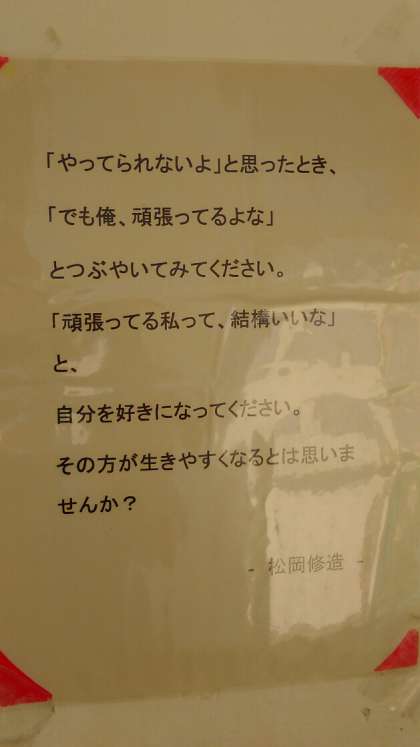 「やってられないよ」と思ったとき、
「でも俺、頑張ってるよな」
とつぶやいてみてください。
「頑張ってる私って、結構いいな」
と、
自分を好きになってください。
その方が生きやすくなるとは思いま
せんか？
- 松岡修造 -